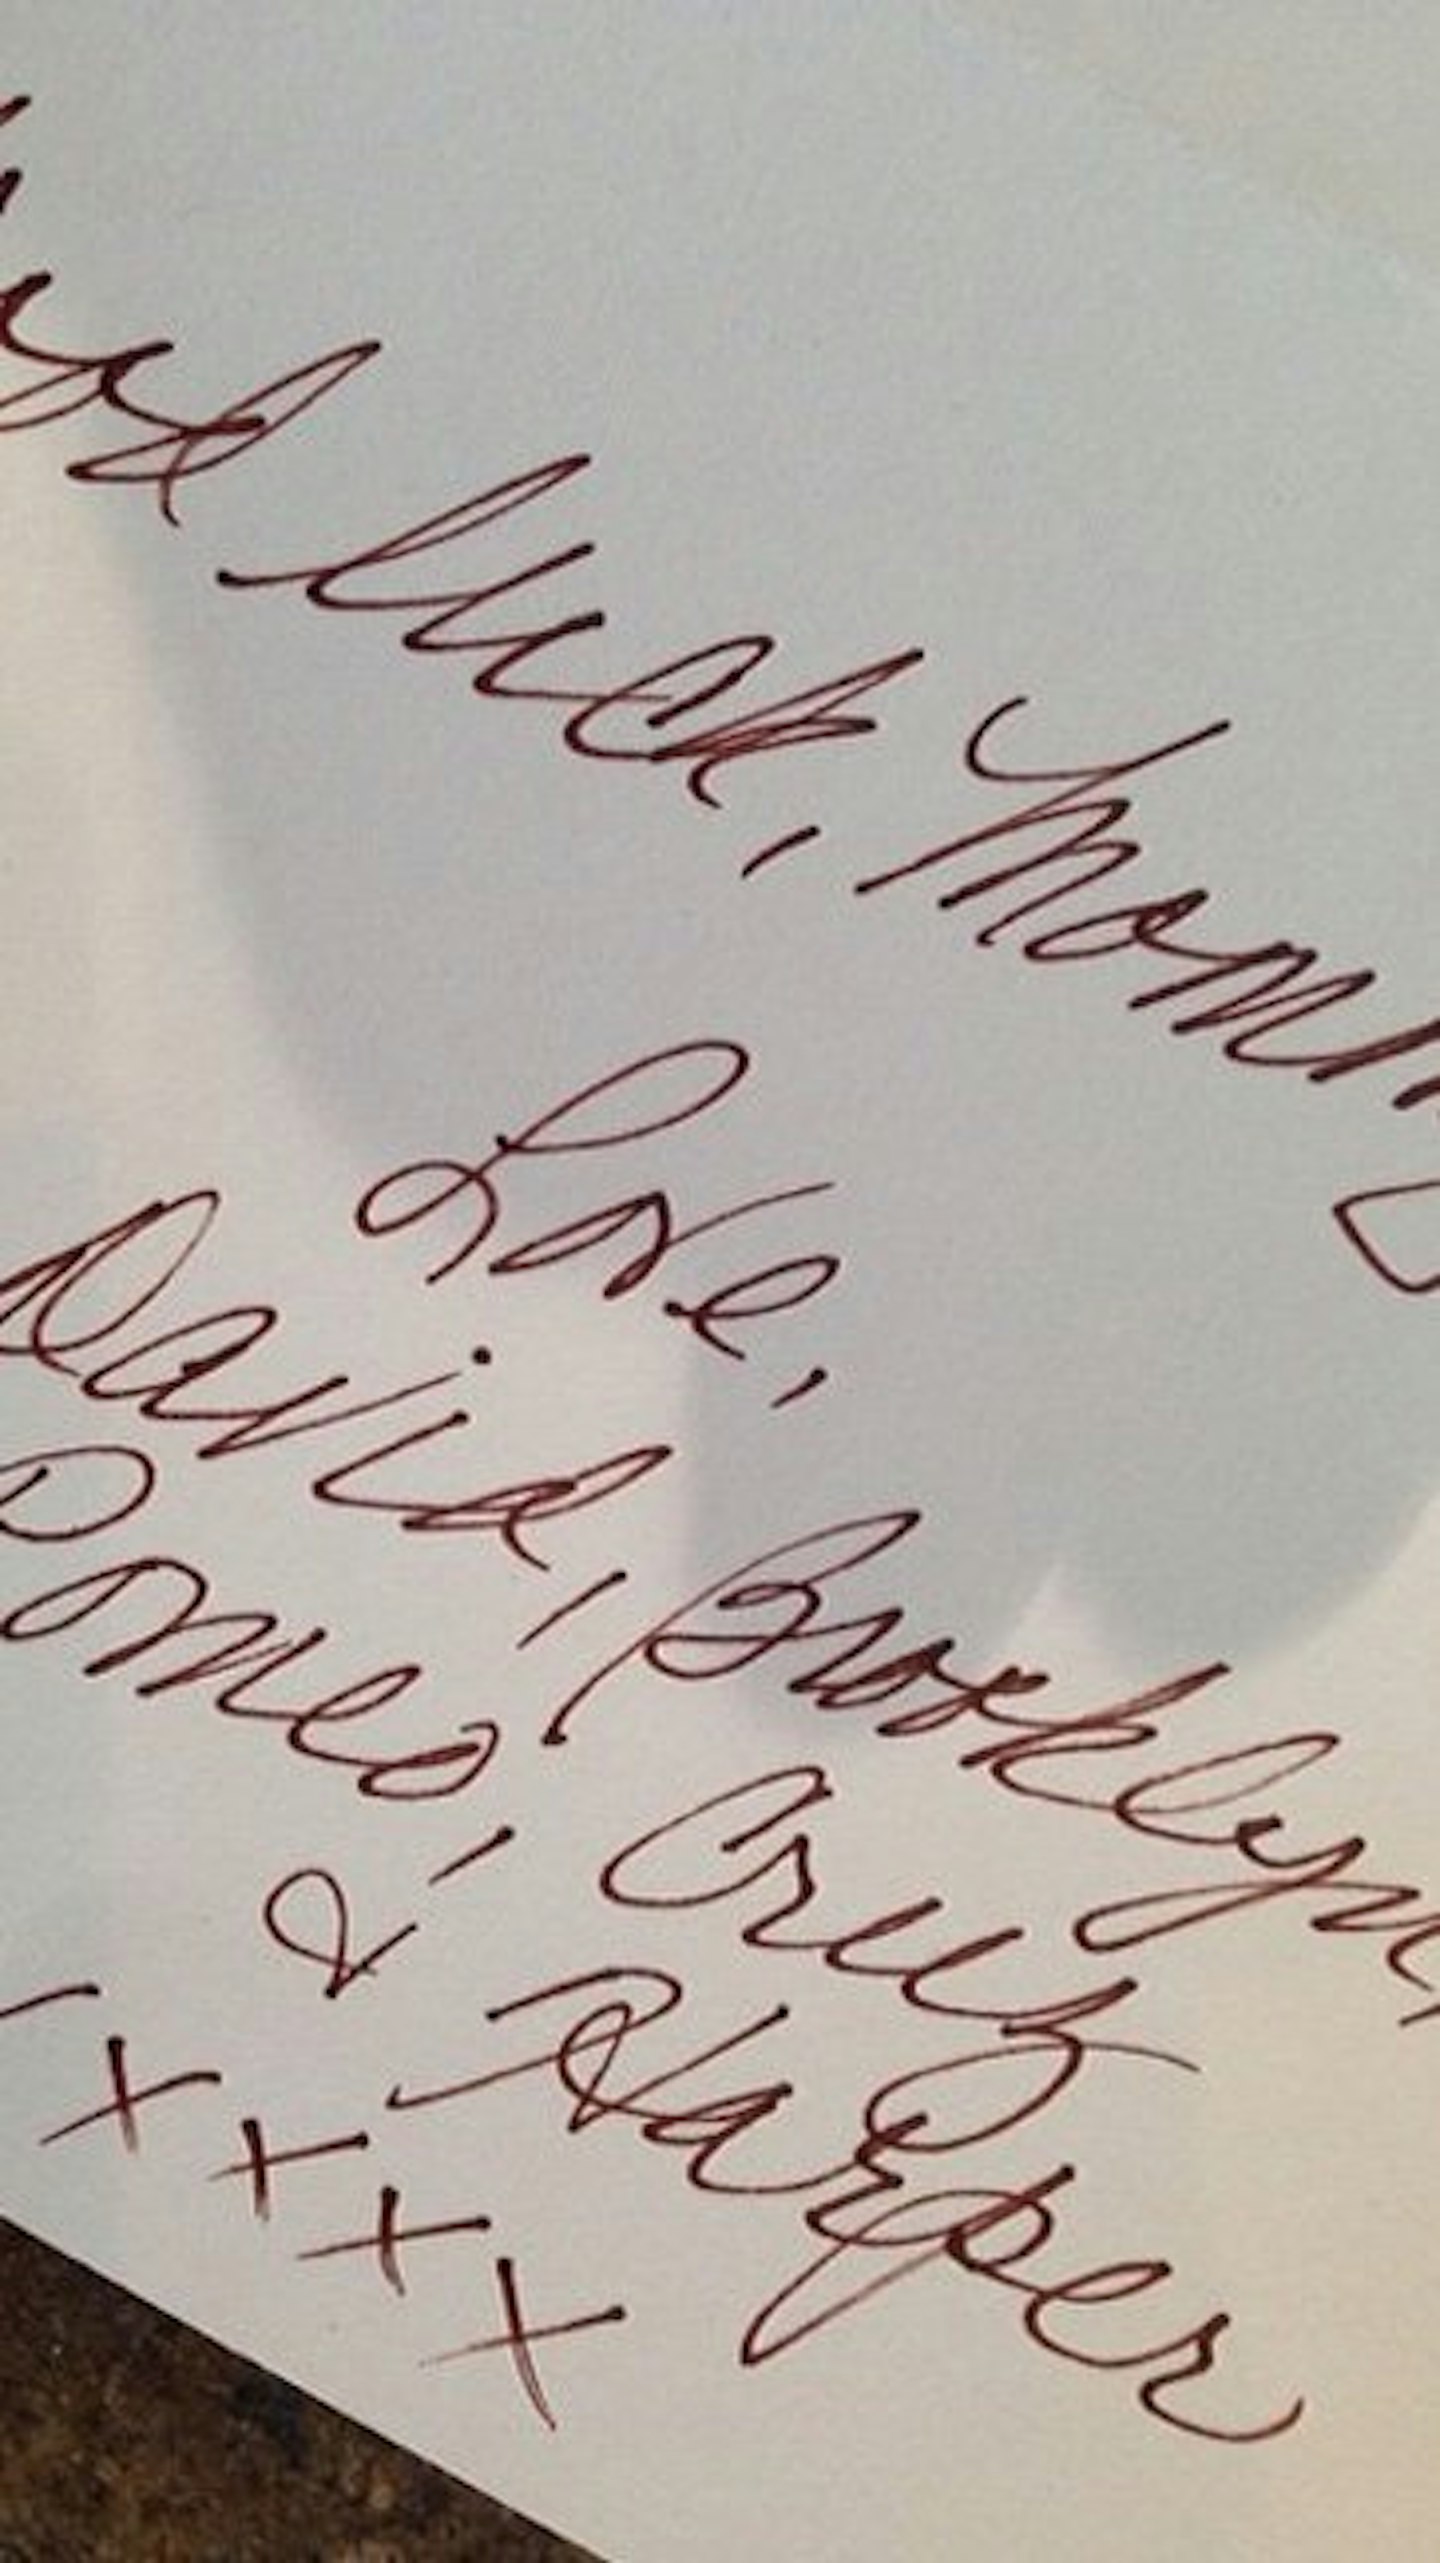 luck, Mommy
Love,
David, Brooklyn,
Romeo, Cruz
& Harper
xxxx